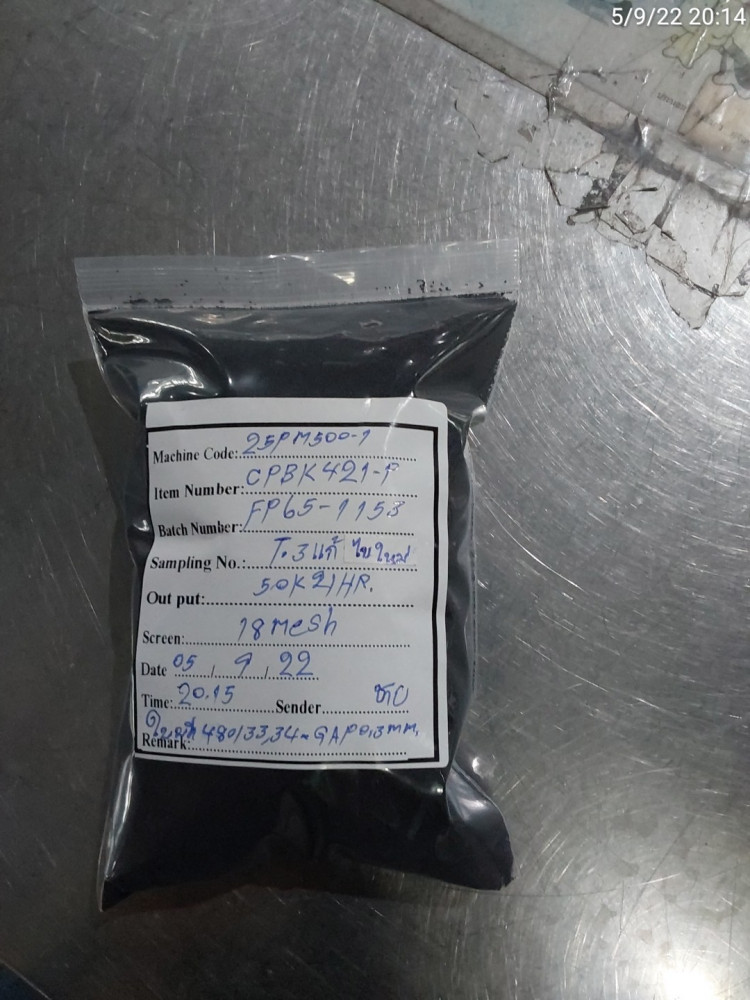 5/9/22 20:14
Machine Code: 25PM500-1
Item Number: CPBK421-P
Batch Number: FP65-1153
Sampling No.: T.3 แก้ ใบใหม่
Out put: 50K2/HR.
Screen: 18 mesh
Date 05 / 9 / 22
Time: 20.15 Sender
480/33,34 GAP 0.3 MM.
Remark: